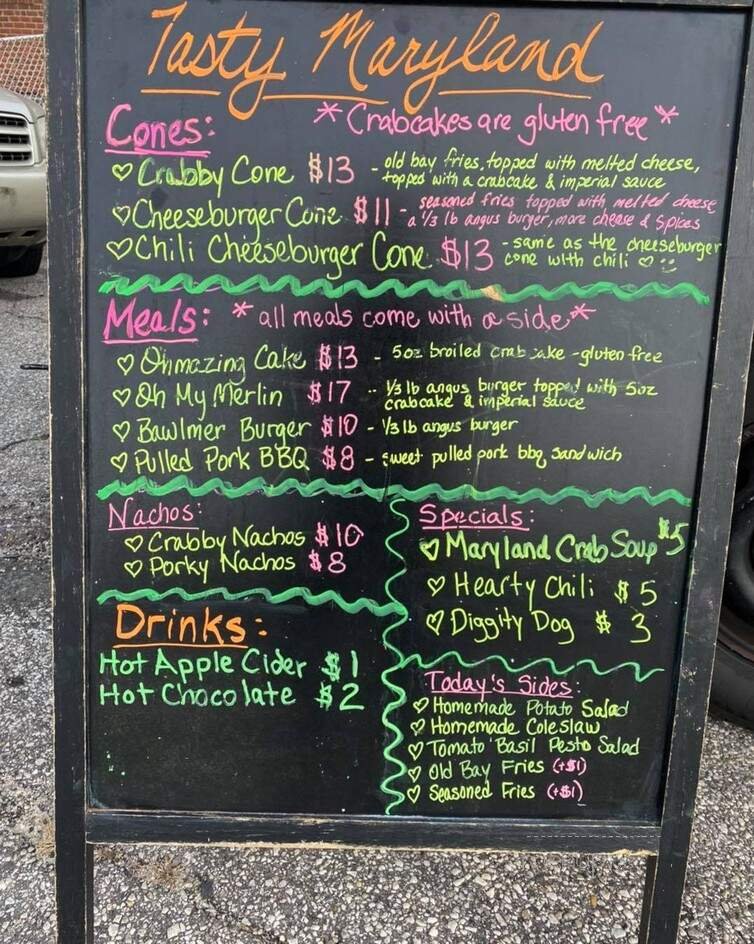 Tasty Maryland
Cones: *Crabcakes are gluten free*
♡ Crabby Cone $13 - old bay fries, topped with melted cheese,
topped with a crabcake & imperial sauce
♡ Cheeseburger Cone $11 - seasoned fries topped with melted cheese
a 1/3 lb angus burger, more cheese & spices
♡ Chili Cheeseburger Cone $13 - same as the cheeseburger
cone with chili ♡ :)
Meals: * all meals come with a side*
♡ Ohmazing Cake $13 - 5oz broiled crab cake - gluten free
♡ Oh My Merlin $17 - 1/3 lb angus burger topped with 5oz
crabcake & imperial sauce
♡ Bawlmer Burger $10 - 1/3 lb angus burger
♡ Pulled Pork BBQ $8 - sweet pulled pork bbq sandwich
Nachos:
♡ Crabby Nachos $10
♡ Porky Nachos $8
Drinks:
Hot Apple Cider $1
Hot Chocolate $2
Specials:
♡ Maryland Crab Soup $5
♡ Hearty Chili $5
♡ Diggity Dog $3
Today's Sides:
♡ Homemade Potato Salad
♡ Homemade Coleslaw
♡ Tomato Basil Pesto Salad
♡ Old Bay Fries (+$1)
♡ Seasoned Fries (+$1)